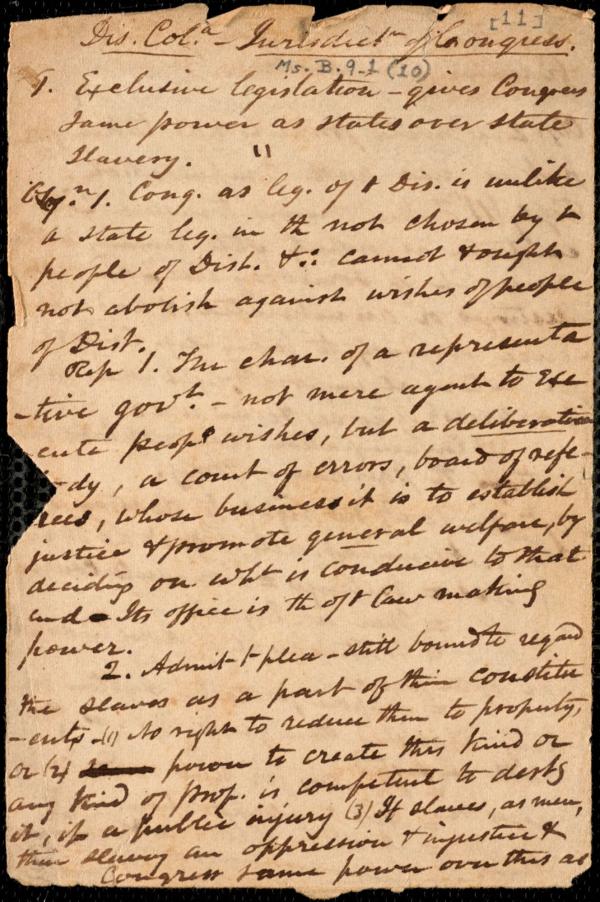 [11]
Dis. Col.a - Jurisdictn of Congress.
Ms. B. 9.1 (10)
1. Exclusive legislation - gives Congress
same power as states over state
slavery. "
1. Cong. as leg. of t Dis. is unlike
a state leg. in th not chosen by t
people of Dist. & ∴ cannot & ought
not abolish against wishes of people
of Dist.
Rep 1. The char. of a representa
-tive govt. - not mere agent to exe
cute peop's wishes, but a deliberative
body, a court of errors, board of refe-
rees, whose business it is to establish
justice & promote general welfare, by
deciding on wht is conducive to that
end - Its office is th of t law making
power.
2. Admit t plea - still bound to regard
the slaves as a part of their constitu
-ents - (1) No right to reduce them to property,
or (2) power to create this kind or
any kind of prop. is competent to destroy
it, if a public injury (3) If slaves, as men,
then slavery an oppression & injustice &
Congress same power over this as